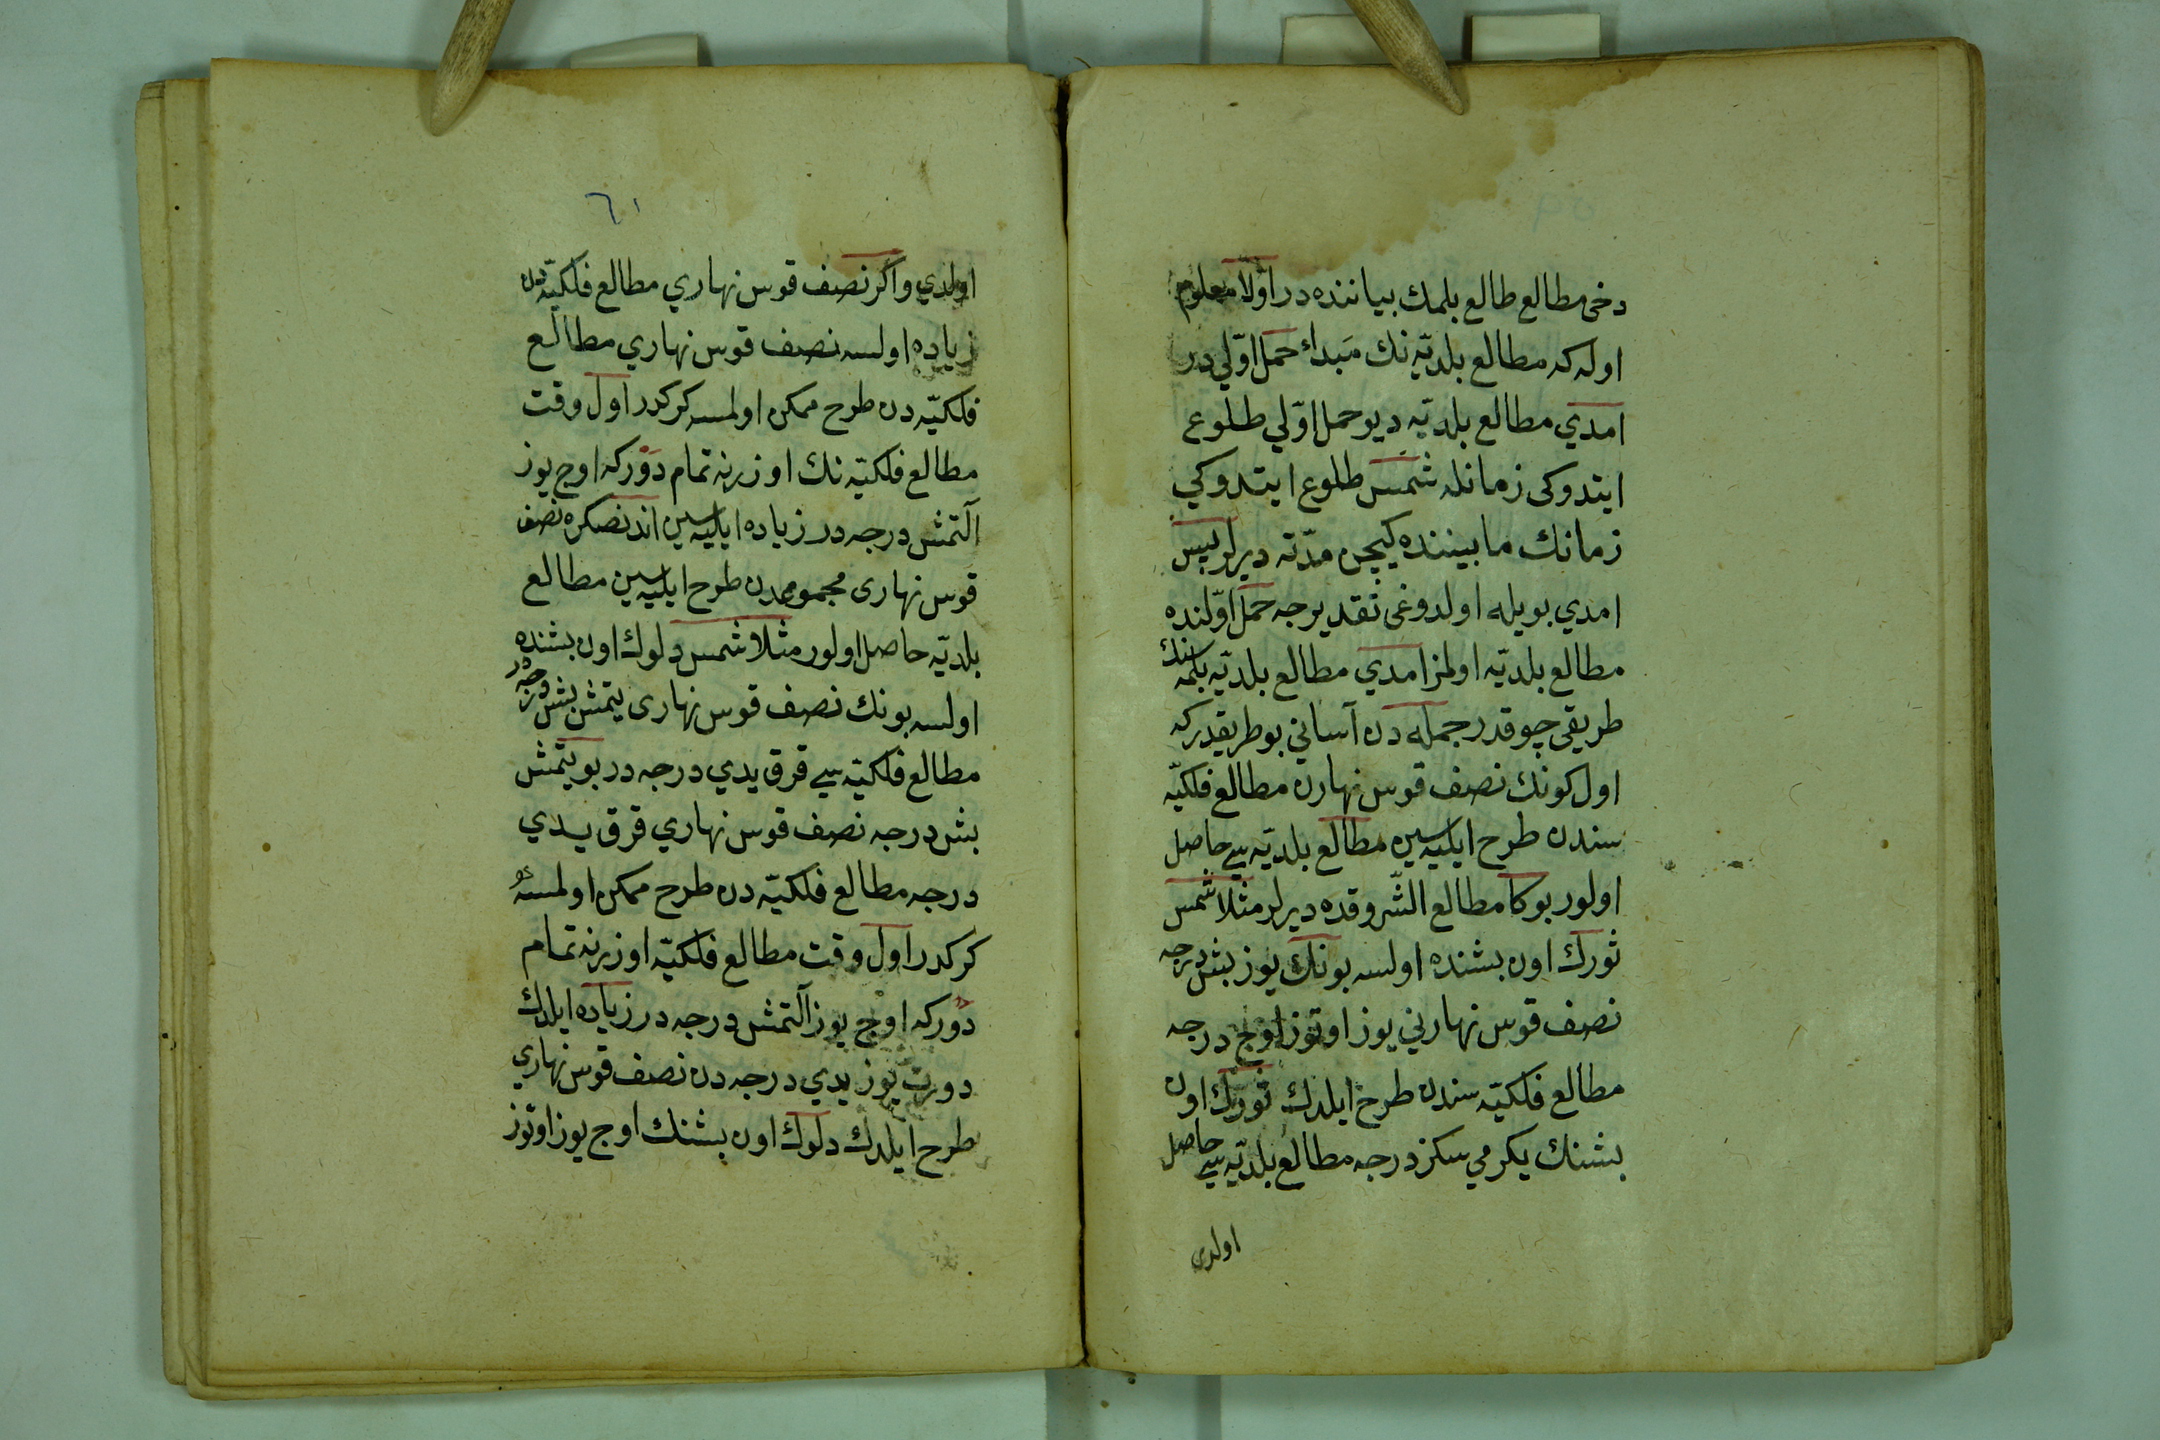 دخی مطالع طالع بلمك بياننده در اوّلا معلوم
اوله كه مطالع بلديّه نك مَبدائ حمل اوّلي در
امدي مطالع بلديّه ديو حمل اوّلي طلوع
ايتدوكی زمانله شمس طلوع ايتدوكي
زمانك مابيننده كيچن مدّته ديرلر پس
امدي بويله اولدوغی تقديرجه حمل اوّلنده
مطالع بلديّه اولمز امدي مطالع بلديّه بلمه نك
طريقی چوقدر جمله دن آساني بو طريقدركه
اول كونك نصف قوس نهارن مطالع فلكيّه
سندن طرح ايليه سين مطالع بلديّه سی حاصل
اولور بوكا مطالع الشّروقده ديرلر مثلا شمس
ثورك اون بشنده اولسه بونك يوز بش درجه
نصف قوس نهاريني يوز اوتوز اوچ درجه
مطالع فلكيّه سندن طرح ايلدك ثورك اون
بشنك يكرمي سكز درجه مطالع بلديّه سی حاصل
اولدی
٦١
اولدي واكر نصف قوس نهاري مطالع فلكيّه دن
زياده اولسه نصف قوس نهاري مطالع
فلكيّه دن طرح ممكن اولمسه كركدر اول وقت
مطالع فلكيّه نك اوزرينه تمام دَوْركه اوچ يوز
آلتمش درجه در زياده ايليه سين اندنصكره نصف
قوس نهاری مجموعدن طرح ايليه سين مطالع
بلديّه حاصل اولور مثلا شمس دلوك اون بشنده
اولسه بونك نصف قوس نهاری يتمش بش درجه در
مطالع فلكيّه سی قرق يدي درجه در بو يتمش
بش درجه نصف قوس نهاري قرق يدي
درجه مطالع فلكيّه دن طرح ممكن اولمسه
كركدر اول وقت مطالع فلكيّه اوزرينه تمام
دَوْركه اوچ يوز آلتمش درجه در زياده ايلدك
دورت يوز يدي درجه دن نصف قوس نهاري
طرح ايلدك دلوك اون بشنك اوچ يوز اوتوز